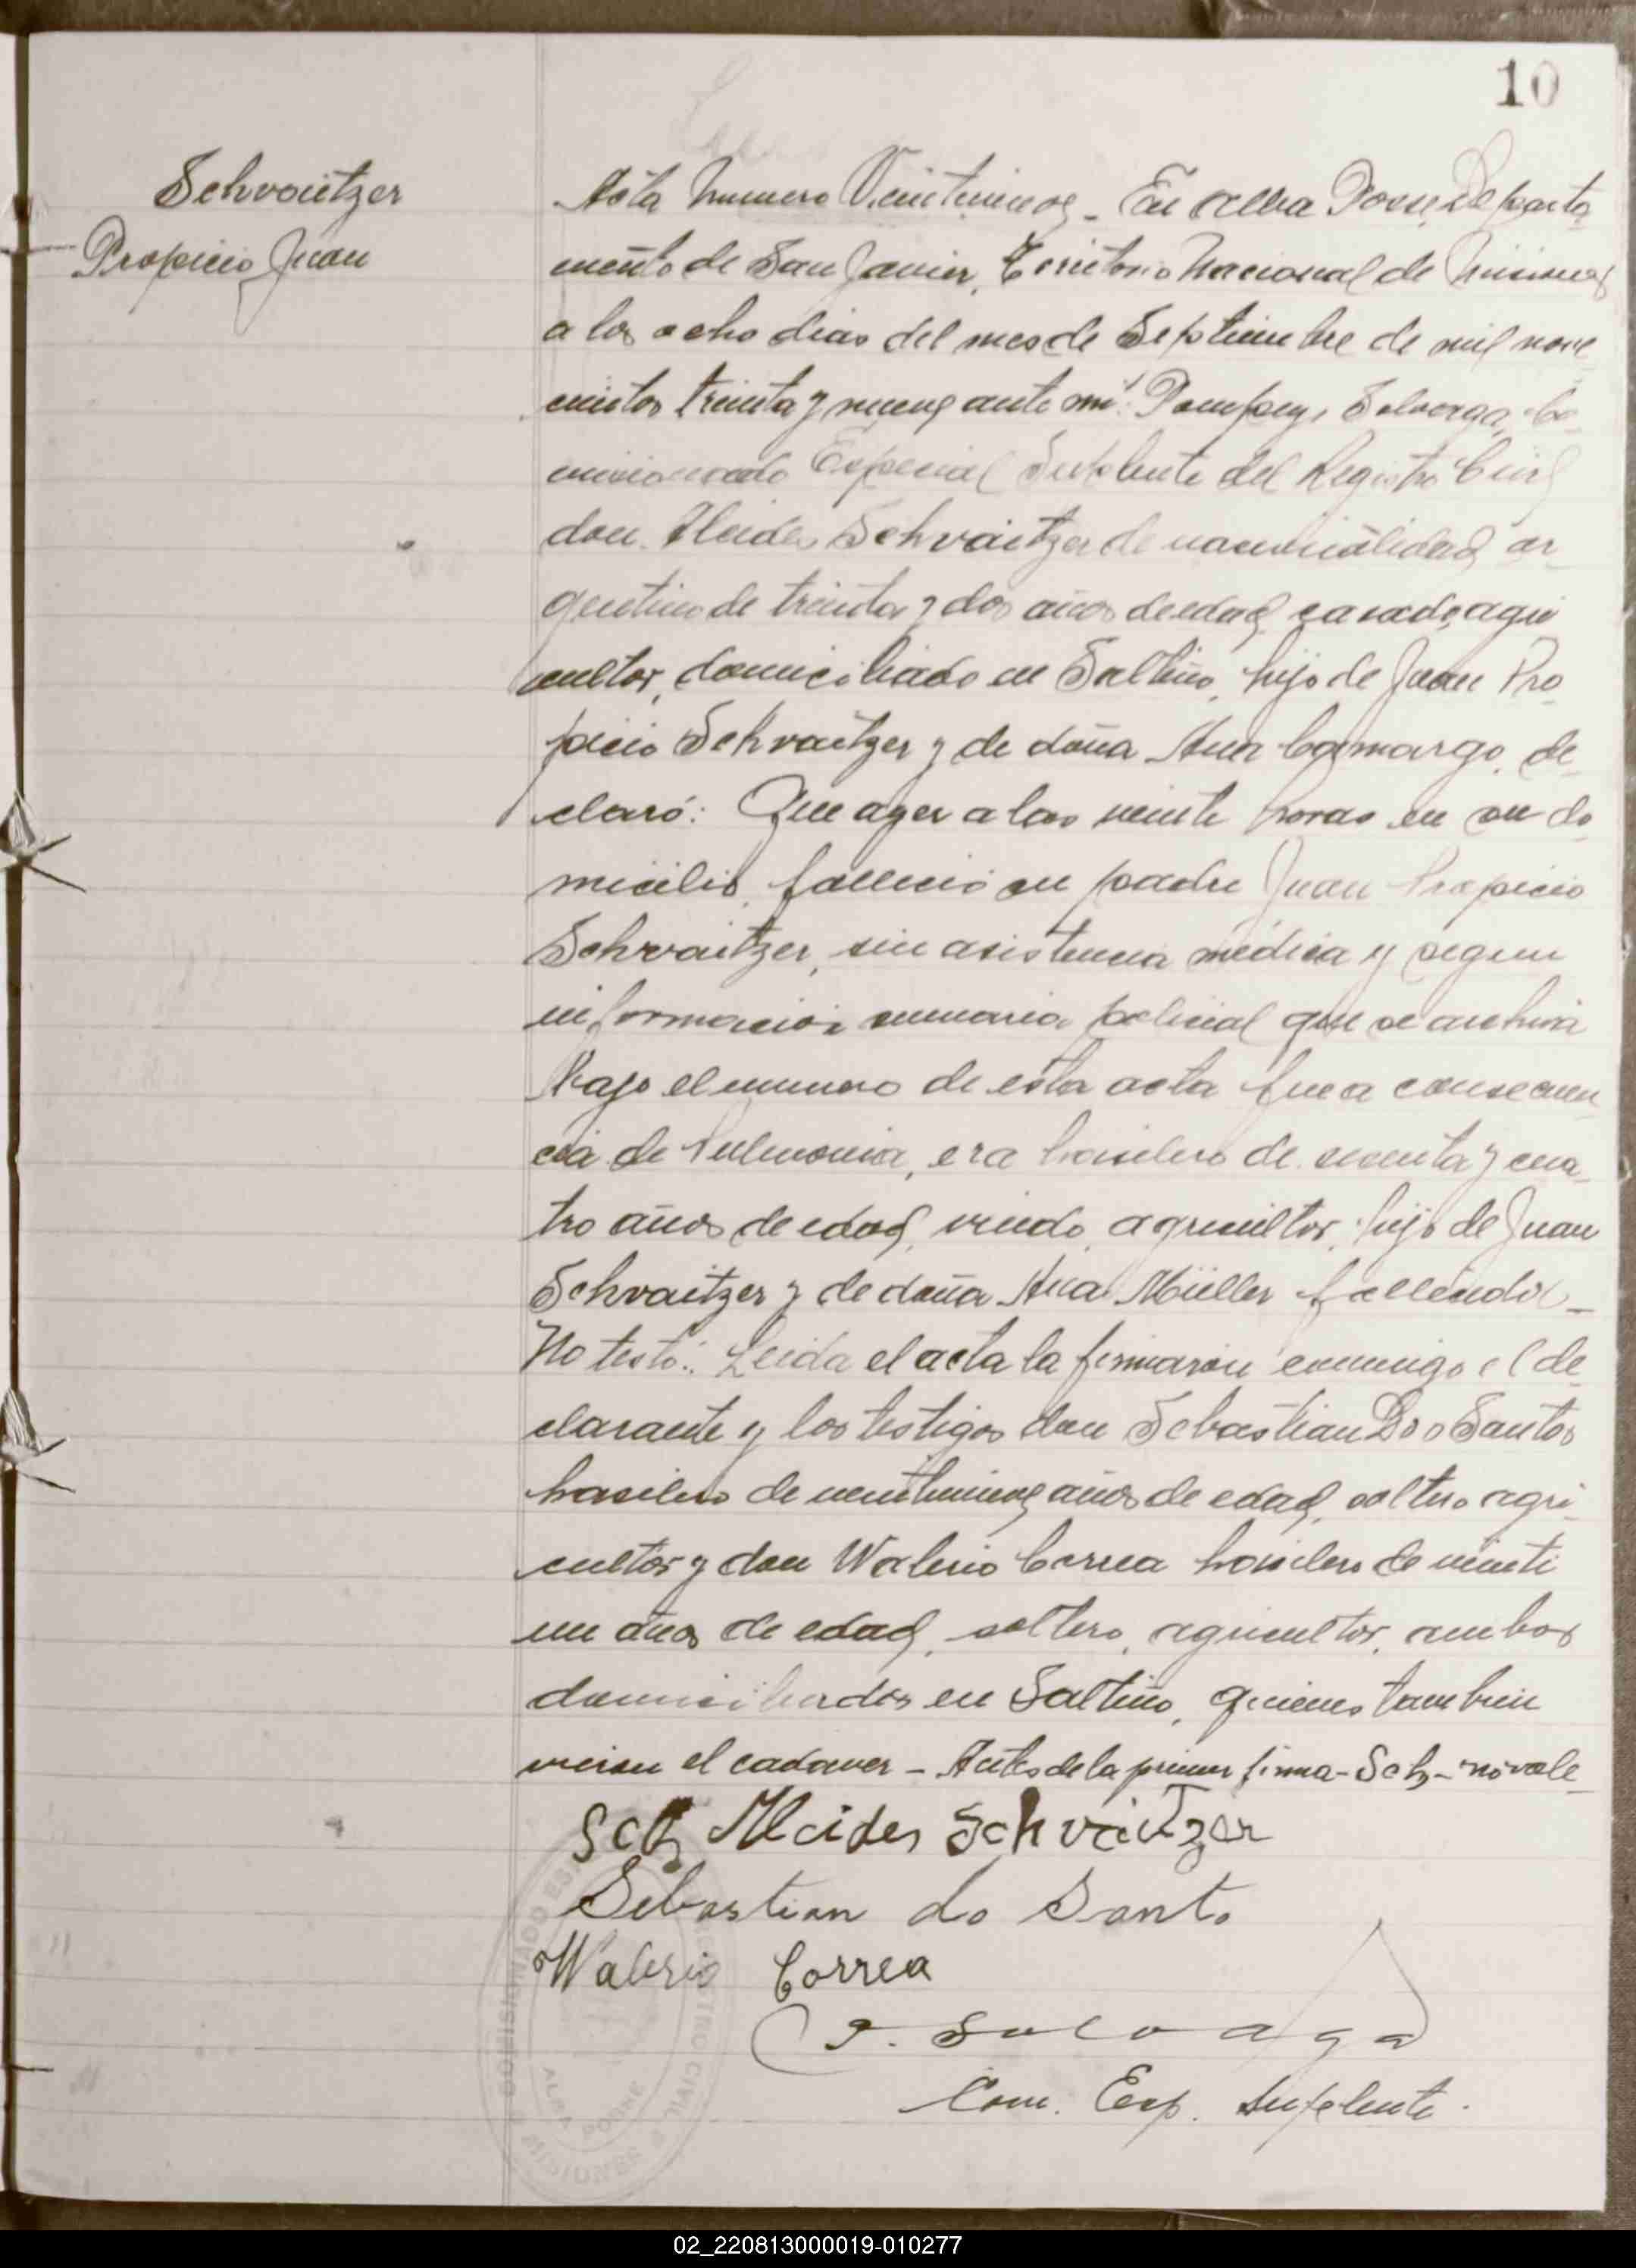 10
Schvaitzer
Propicio Juan
Acta Numero Veintinueve _ En Alba Posse, Departa
mento de San Javier, Territorio Nacional de Misiones
a los ocho dias del mes de Septiembre de mil nove
cientos treinta y nueve ante mi: Pompeyo Solvaga, Co
misionado Especial Suplente del Registro Civil
don Alcides Schvaitzer de nacionalidad ar
gentino de treinta y dos años de edad, casado, agri
cultor, domiciliado en Saltiño, hijo de Juan Pro
picio Schvaitzer y de doña Ana Camargo, de
claró: Que ayer a las veinte horas en su do
micilio, falleció su padre Juan Propicio
Schvaitzer, sin asistencia médica y segun
informacion sumaria policial que se archiva
bajo el numero de esta acta fue a consecuen
cia de Pulmonia, era brasilero de y cua
tro años de edad, viudo, agricultor, hijo de Juan
Schvaitzer y de doña Ana Müller fallecidos _
No testó. Leida el acta la firmaron conmigo el de
clarante y los testigos don Sebastian Dos Santos
brasilero de veintinueve años de edad, soltero agri
cultor y don Walerio Correa brasilero de veinti
un años de edad, soltero, agricultor, ambos
domiciliados en Saltiño, quienes tambien
vieron el cadaver - Antes de la primer firma - Sch - no vale _
Sch Alcides Schvaitzer
Sebastian do Santo
Walerio Correa
P. Solvaga
Com. Esp. Suplente.
COMISIONADO REGISTRO CIVIL
ALBA POSSE
MISIONES
02_220813000019-010277